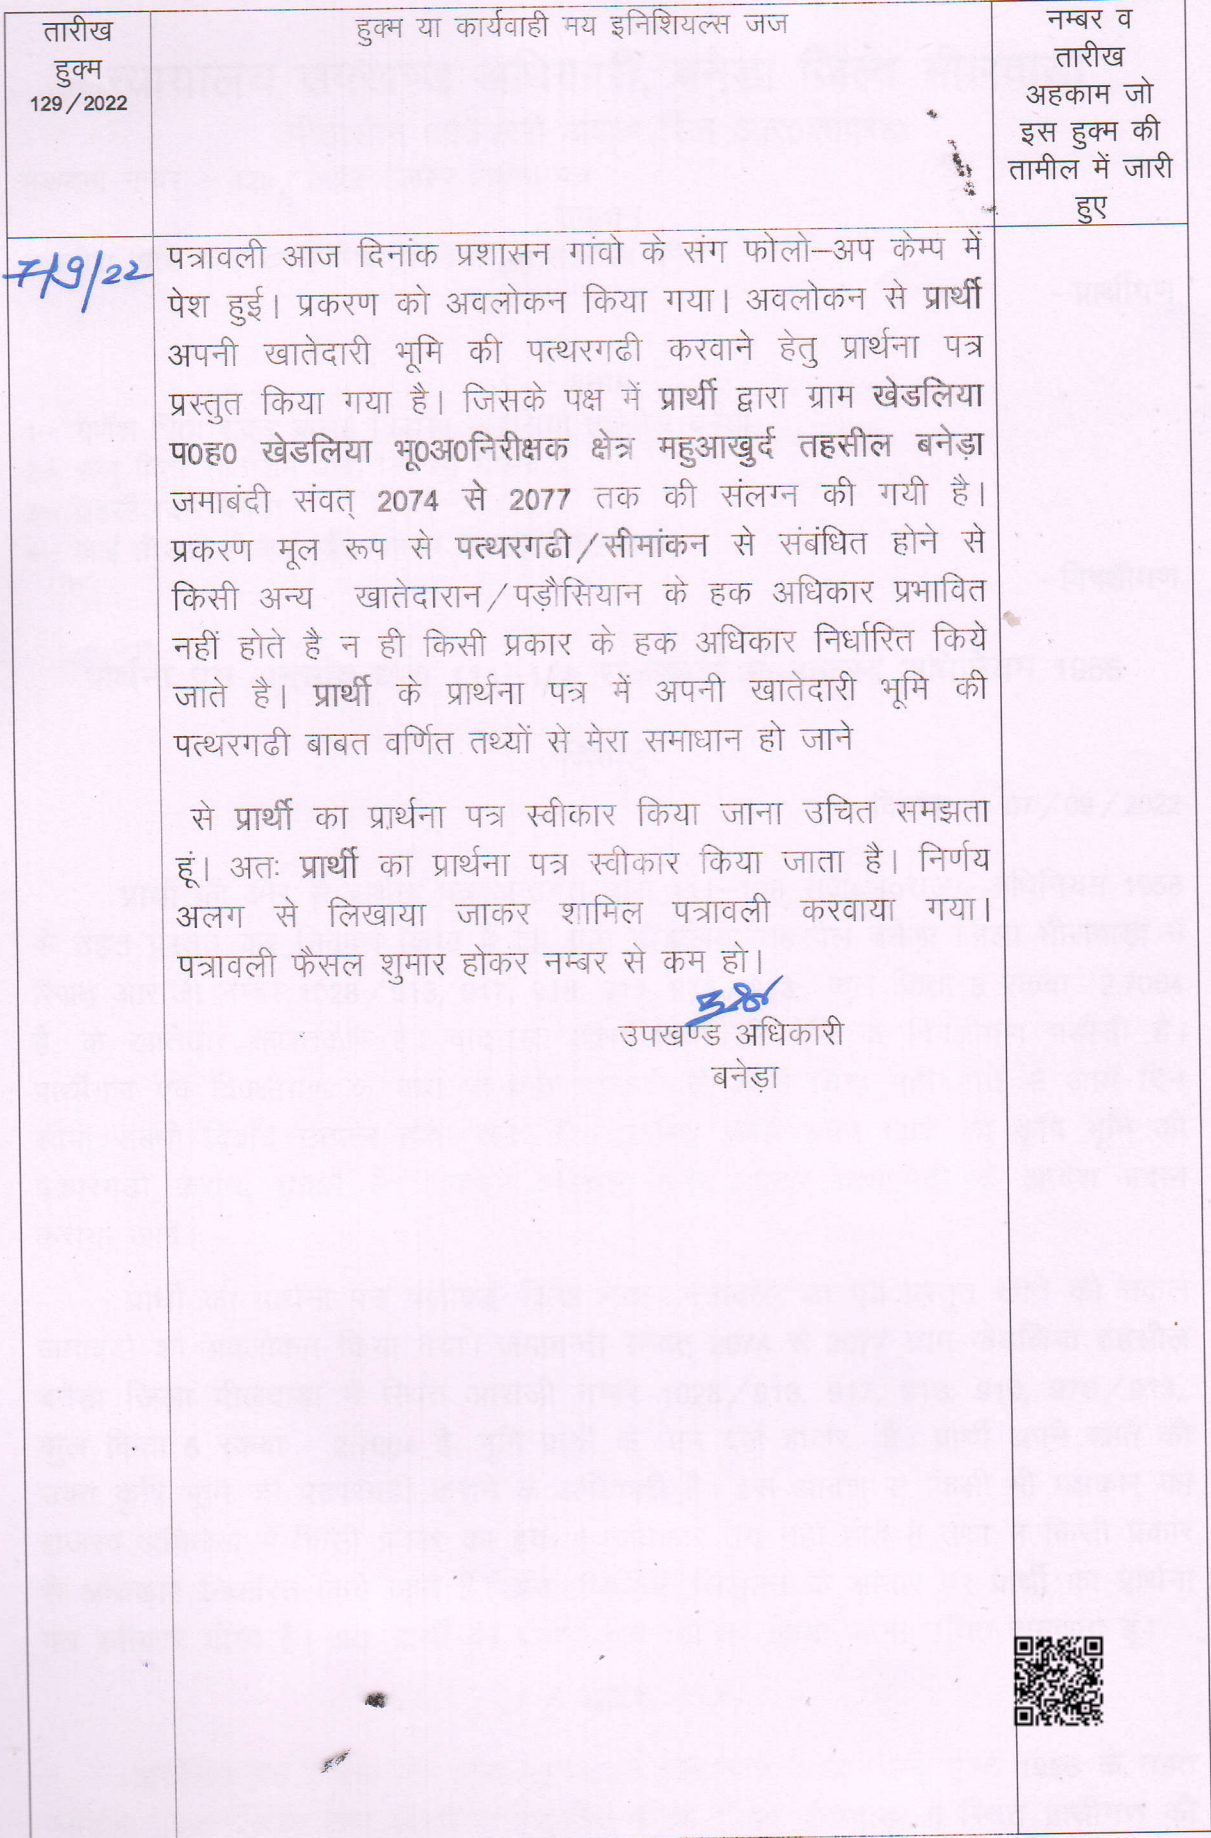 तारीख
हुक्म
129/2022
हुक्म या कार्यवाही मय इनिशियल्स जज
नम्बर व
तारीख
अहकाम जो
इस हुक्म की
तामील में जारी
हुए
7/9/22
पत्रावली आज दिनांक प्रशासन गांवो के संग फोलो–अप केम्प में
पेश हुई। प्रकरण को अवलोकन किया गया। अवलोकन से प्रार्थी
अपनी खातेदारी भूमि की पत्थरगढी करवाने हेतु प्रार्थना पत्र
प्रस्तुत किया गया है। जिसके पक्ष में प्रार्थी द्वारा ग्राम खेडलिया
प0ह0 खेडलिया भू0अ0निरीक्षक क्षेत्र महुआखुर्द तहसील बनेड़ा
जमाबंदी संवत् 2074 से 2077 तक की संलग्न की गयी है।
प्रकरण मूल रूप से पत्थरगढी/सीमांकन से संबंधित होने से
किसी अन्य खातेदारान/पड़ौसियान के हक अधिकार प्रभावित
नहीं होते है न ही किसी प्रकार के हक अधिकार निर्धारित किये
जाते है। प्रार्थी के प्रार्थना पत्र में अपनी खातेदारी भूमि की
पत्थरगढी बाबत वर्णित तथ्यों से मेरा समाधान हो जाने
से प्रार्थी का प्रार्थना पत्र स्वीकार किया जाना उचित समझता
हूं। अतः प्रार्थी का प्रार्थना पत्र स्वीकार किया जाता है। निर्णय
अलग से लिखाया जाकर शामिल पत्रावली करवाया गया।
पत्रावली फैसल शुमार होकर नम्बर से कम हो।
उपखण्ड अधिकारी
बनेड़ा